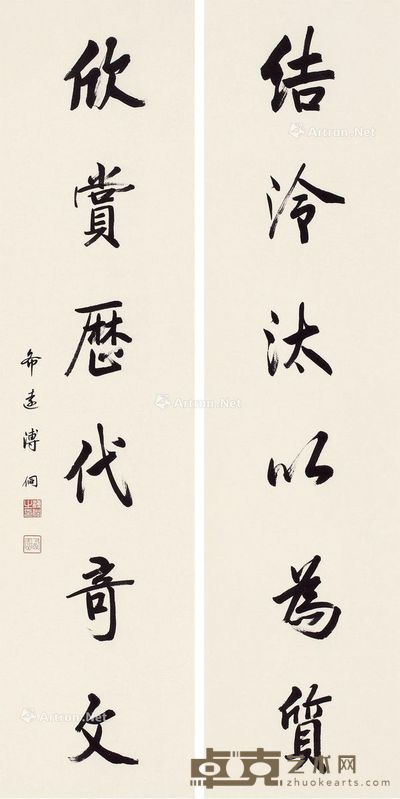 结泠汰以為質
欣賞歷代奇文
希遠溥侗
Artron.Net
Artron.Net
Artron.Net
卓克艺术网
zhuokearts.com